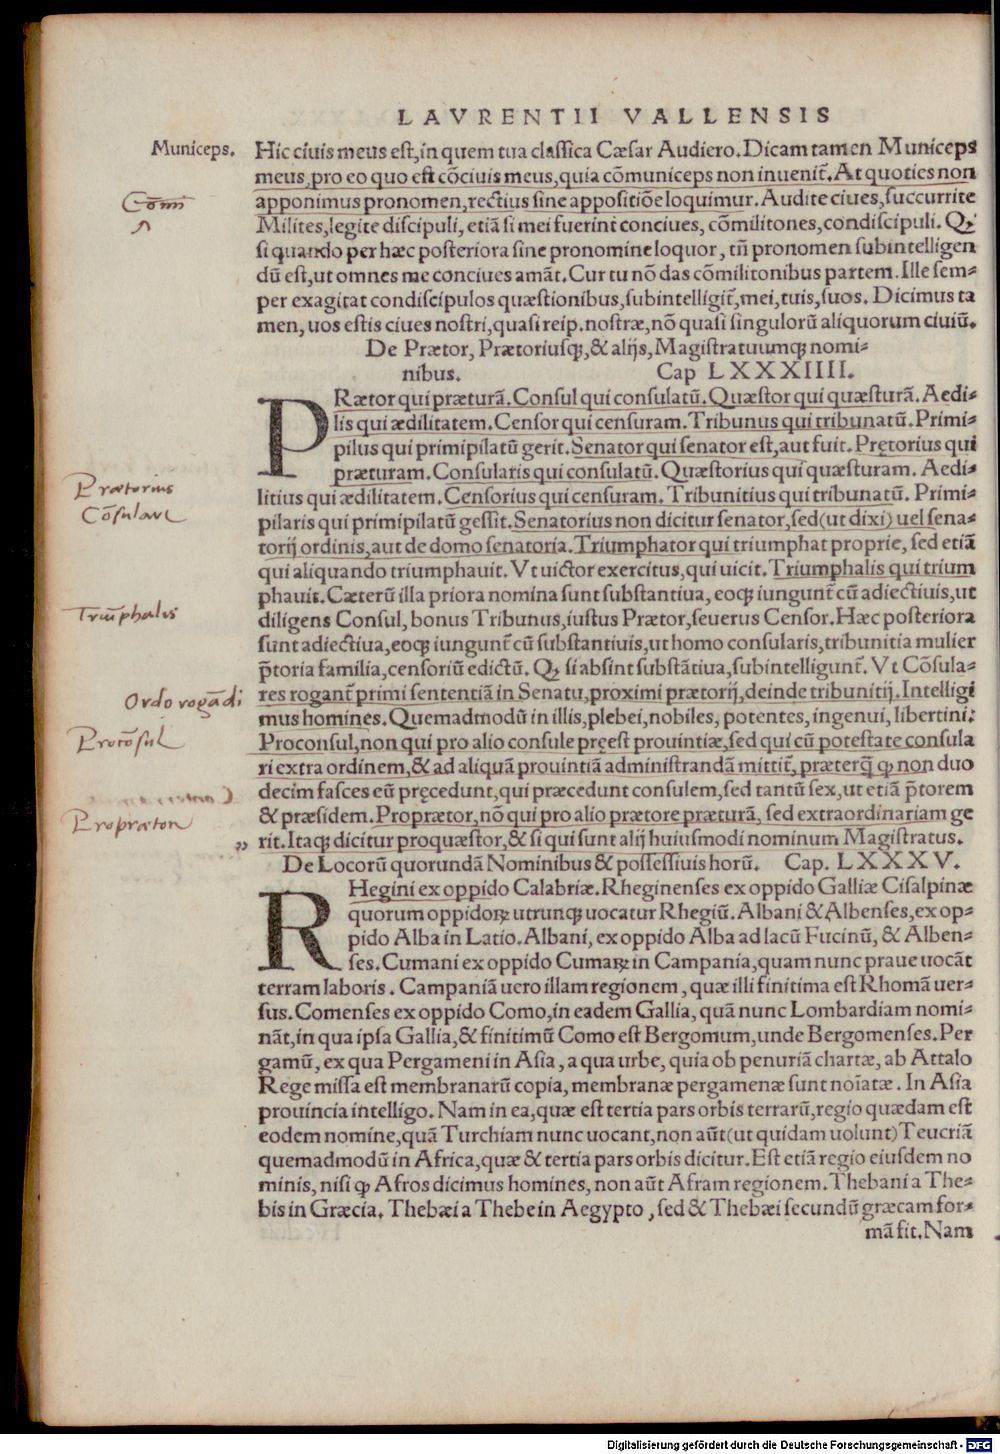 LAVRENTII VALLENSIS
Municeps.
Hic ciuis meus est, in quem tua classica Cæsar Audiero. Dicam tamen Municeps
meus, pro eo quo est cōciuis meus, quia cōmuniceps non inuenit᷑. At quoties non
apponimus pronomen, rectius sine appositiōe loquimur. Audite ciues, succurrite
Milites, legite discipuli, etiā si mei fuerint conciues, cōmilitones, condiscipuli. Qꝫ
si quando per hæc posteriora sine pronomine loquor, tñ pronomen subintelligen
dū est, ut omnes me conciues amāt. Cur tu nō das cōmilitonibus partem. Ille sem-
per exagitat condiscipulos quæstionibus, subintelligit᷑, mei, tuis, suos. Dicimus ta
men, uos estis ciues nostri, quasi reip. nostræ, nō quasi singulorū aliquorum ciuiū.
De Prætor, Prætoriusqꝫ, & alijs, Magistratuumqꝫ nomi-
nibus. Cap LXXXIIII.
PRætor qui præturā. Consul qui consulatū. Quæstor qui quæsturā. Aedi-
lis qui ædilitatem. Censor qui censuram. Tribunus qui tribunatū. Primi-
pilus qui primipilatū gerit. Senator qui senator est, aut fuit. Prętorius qui
præturam. Consularis qui consulatū. Quæstorius qui quæsturam. Aedi-
litius qui ædilitatem. Censorius qui censuram. Tribunitius qui tribunatū. Primi-
pilaris qui primipilatū gessit. Senatorius non dicitur senator, sed (ut dixi) uel sena-
torij ordinis, aut de domo senatoria. Triumphator qui triumphat proprie, sed etiā
qui aliquando triumphauit. Vt uictor exercitus, qui uicit. Triumphalis qui trium
phauit. Cæterū illa priora nomina sunt substantiua, eoqꝫ iungunt᷑ cū adiectiuis, ut
diligens Consul, bonus Tribunus, iustus Prætor, seuerus Censor. Hæc posteriora
sunt adiectiua, eoqꝫ iungunt᷑ cū substantiuis, ut homo consularis, tribunitia mulier
p̄toria familia, censoriū edictū. Qꝫ si absint substātiua, subintelligunt᷑. Vt Cōsula-
res rogant᷑ primi sententiā in Senatu, proximi prætorij, deinde tribunitij. Intelligi
mus homines. Quemadmodū in illis, plebei, nobiles, potentes, ingenui, libertini:
Proconsul, non qui pro alio consule pręest prouintiæ, sed qui cū potestate consula
ri extra ordinem, & ad aliquā prouintiā administrandā mittit᷑, præterq̄ ꝙ non duo
decim fasces eū pręcedunt, qui præcedunt consulem, sed tantū sex, ut etiā p̄torem
& præsidem. Proprætor, nō qui pro alio prætore præturā, sed extraordinariam ge
rit. Itaqꝫ dicitur proquæstor, & si qui sunt alij huiusmodi nominum Magistratus.
De Locorū quorundā Nominibus & possessiuis horū. Cap. LXXXV.
RHegini ex oppido Calabriæ. Rheginenses ex oppido Galliæ Cisalpinæ
quorum oppidoꝝ utrunqꝫ uocatur Rhegiū. Albani & Albenses, ex op-
pido Alba in Latio. Albani, ex oppido Alba ad lacū Fucinū, & Alben-
ses. Cumani ex oppido Cumaꝝ in Campania, quam nunc praue uocāt
terram laboris. Campaniā uero illam regionem, quæ illi finitima est Rhomā uer-
sus. Comenses ex oppido Como, in eadem Gallia, quā nunc Lombardiam nomi-
nāt, in qua ipsa Gallia, & finitimū Como est Bergomum, unde Bergomenses. Per
gamū, ex qua Pergameni in Asia, a qua urbe, quia ob penuriā chartæ, ab Attalo
Rege missa est membranarū copia, membranæ pergamenæ sunt noīatæ. In Asia
prouincia intelligo. Nam in ea, quæ est tertia pars orbis terrarū, regio quædam est
eodem nomine, quā Turchiam nunc uocant, non aūt (ut quidam uolunt) Teucriā
quemadmodū in Africa, quæ & tertia pars orbis dicitur. Est etiā regio eiusdem no
minis, nisi ꝙ Afros dicimus homines, non aūt Afram regionem. Thebani a The-
bis in Græcia. Thebæi a Thebe in Aegypto, sed & Thebæi secundū græcam for-
mā fit. Nam
Prætorius
Cōsulare
Triūphalis
Ordo rogādi
Procōsul
Proprætor
Digitalisierung gefördert durch die Deutsche Forschungsgemeinschaft - DFG